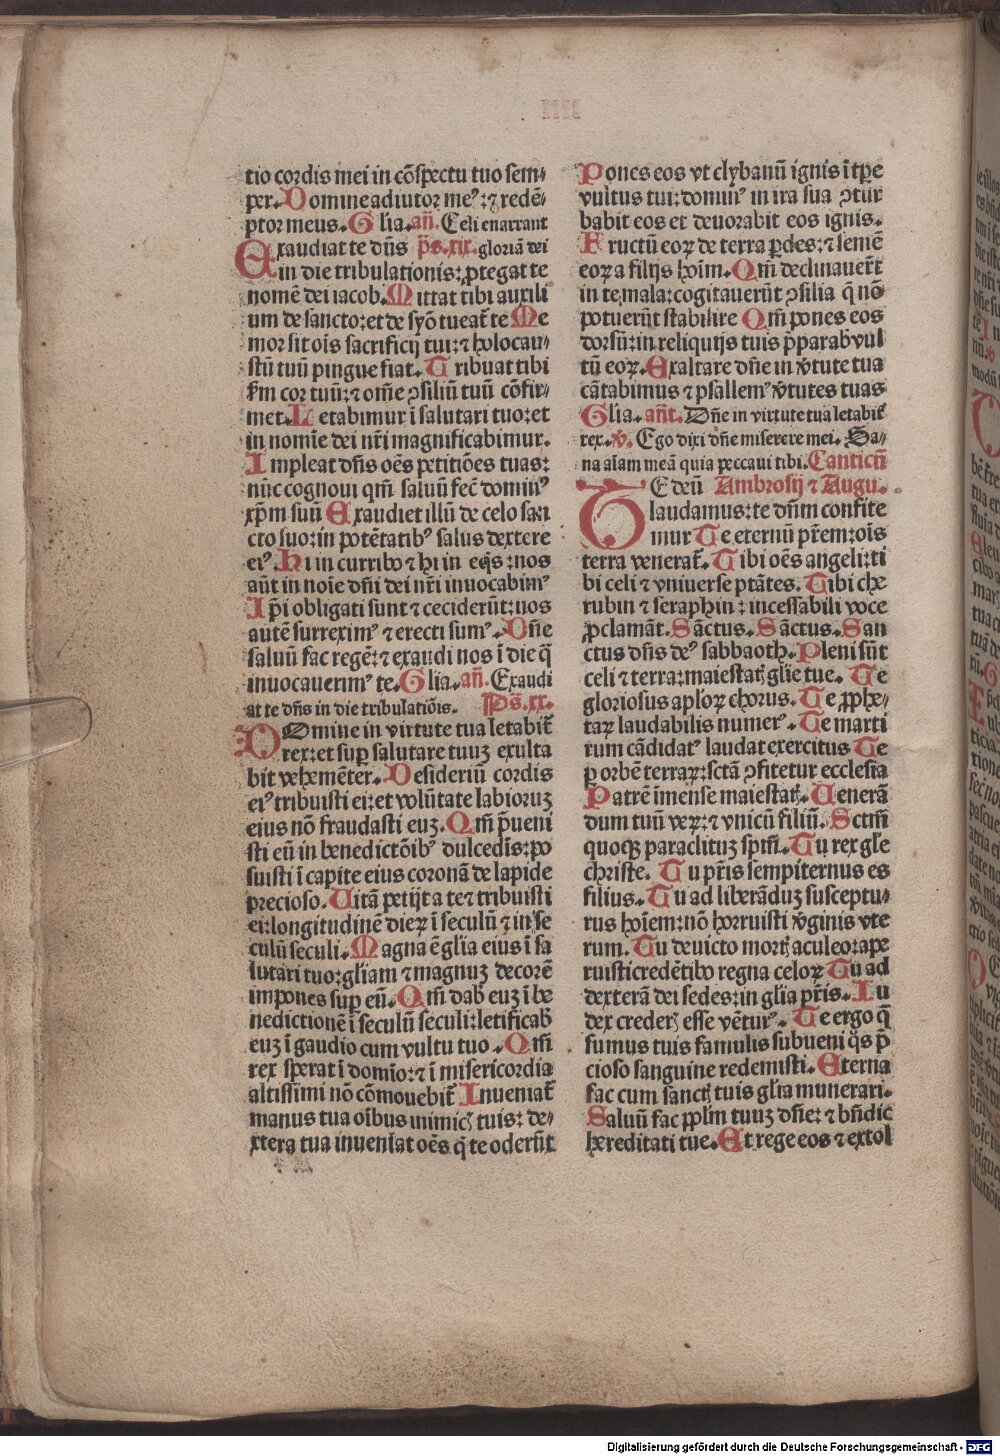 IIII
tio cordis mei in cõspectu tuo sem⸗
per. Domine adiutor meꝰ: ⁊ redẽ⸗
ptor meus. Glia. añ. Celi enarrant
Exaudiat te dñs p̃s. xix. gloriã dei
in die tribulationis: ꝓtegat te
nomẽ dei iacob. Mittat tibi auxili
um de sancto: et de syõ tueat̃ te Me
mor sit oĩs sacrificij tui: ⁊ holocau⸗
stũ tuũ pingue fiat. Tribuat tibi
ẜm cor tuũ: ⁊ om̃e ↄsiliũ tuũ cõfir⸗
met. Letabimur ĩ salutari tuo: et
in nomĩe dei nr̃i magnificabimur.
Impleat dñs oẽs petitiões tuas:
nũc cognoui qm̃ saluũ fec̃ dominꝰ
xp̃m suũ Exaudiet illũ de celo san
cto suo: in potẽtatibꝰ salus dextere
eiꝰ. Hi in curribꝰ ⁊ hi in eq̃s: nos
aũt in noĩe dñi dei nr̃i inuocabimꝰ
Ip̃i obligati sunt ⁊ ceciderũt: nos
autẽ surreximꝰ ⁊ erecti sumꝰ. Dñe
saluũ fac regẽ: ⁊ exaudi nos ĩ die q̃
inuocauerimꝰ te. Glia. añ. Exaudi
at te dñs in die tribulatiõis. Ps̃. xx.
Domine in virtute tua letabit̃
rex: et suꝑ salutare tuuꝫ exulta
bit vehemẽter. Desideriũ cordis
eiꝰ tribuisti ei: et volũtate labioruꝫ
eius nõ fraudasti euꝫ. Qm̃ p̃ueni
sti eũ in benedictõibꝰ dulcedĩs: po
suisti ĩ capite eius coronã de lapide
precioso. Uitã petijt a te ⁊ tribuisti
ei: longitudinẽ dieꝝ ĩ seculũ ⁊ in se
culũ seculi. Magna ẽ glia eius ĩ sa
lutari tuo: gliam ⁊ magnuꝫ decorẽ
impones suꝑ eũ. Qm̃ dab̃ euꝫ ĩ be
nedictionẽ ĩ seculũ seculi: letificab̃
euꝫ ĩ gaudio cum vultu tuo. Qm̃
rex sperat ĩ domĩo: ⁊ ĩ misericordia
altissimi nõ cõmouebit̃ Inueniat̃
manus tua oĩbus inimicꝭ tuis: de⸗
xtera tua inueniat oẽs q̃ te oderũt
Pones eos vt clybanũ ignis ĩ tp̃e
vultus tui: dominꝰ in ira sua ↄtur
babit eos et deuorabit eos ignis.
Fructũ eoꝝ de terra ꝑdes: ⁊ semẽ
eoꝝ a filijs hoĩm. Qm̃ declinauer̃t
in te mala: cogitauerũt ↄsilia q̃ nõ
potuerũt stabilire Qm̃ pones eos
dorsũ: in reliquijs tuis p̃parab̃ vul
tũ eoꝝ. Exaltare dñe in v̾tute tua
cãtabimus ⁊ psallemꝰ v̾tutes tuas
Glia. añt. Dñe in virtute tua letabit̃
rex. v̾. Ego dixi dñe miserere mei. Sa⸗
na aĩam meã quia peccaui tibi. Canticũ
TE deũ Ambrosij ⁊ Augu.
laudamus: te dñm confite
mur Te eternũ pr̃em: oĩs
terra venerat̃. Tibi oẽs angeli: ti
bi celi ⁊ vniuerse ptãtes. Tibi che
rubin ⁊ seraphin: incessabili voce
ꝓclamãt. Sãctus. Sãctus. San
ctus dñs deꝰ sabbaoth. Pleni sũt
celi ⁊ terra: maiestatꝭ glie tue. Te
gloriosus aploꝝ chorus. Te ꝓphe⸗
taꝝ laudabilis numerꝰ. Te marti
rum cãdidatꝰ laudat exercitus Te
ꝑ orbẽ terraꝝ: sctã ↄfitetur ecclesia
Patrẽ imense maiestatꝭ. Uenerã
dum tuũ veꝝ: ⁊ vnicũ filiũ. Sctm̃
quoqꝫ paraclituꝫ spm̃. Tu rex gl̃e
christe. Tu pr̃is sempiternus es
filius. Tu ad liberãduꝫ susceptu⸗
rus hoĩem: nõ horruisti v̾ginis vte
rum. Tu deuicto mortꝭ aculeo: ape
ruisti credẽtibꝰ regna celoꝝ Tu ad
dexterã dei sedes: in glia pr̃is. Iu
dex crederꝭ esse vẽturꝰ. Te ergo q̃
sumus tuis famulis subueni q̃s p̃
cioso sanguine redemisti. Eterna
fac cum sanctꝭ tuis glia munerari.
Saluũ fac pplm̃ tuuꝫ dñe: ⁊ bñdic
hereditati tue. Et rege eos ⁊ extol
Digitalisierung gefördert durch die Deutsche Forschungsgemeinschaft - DFG